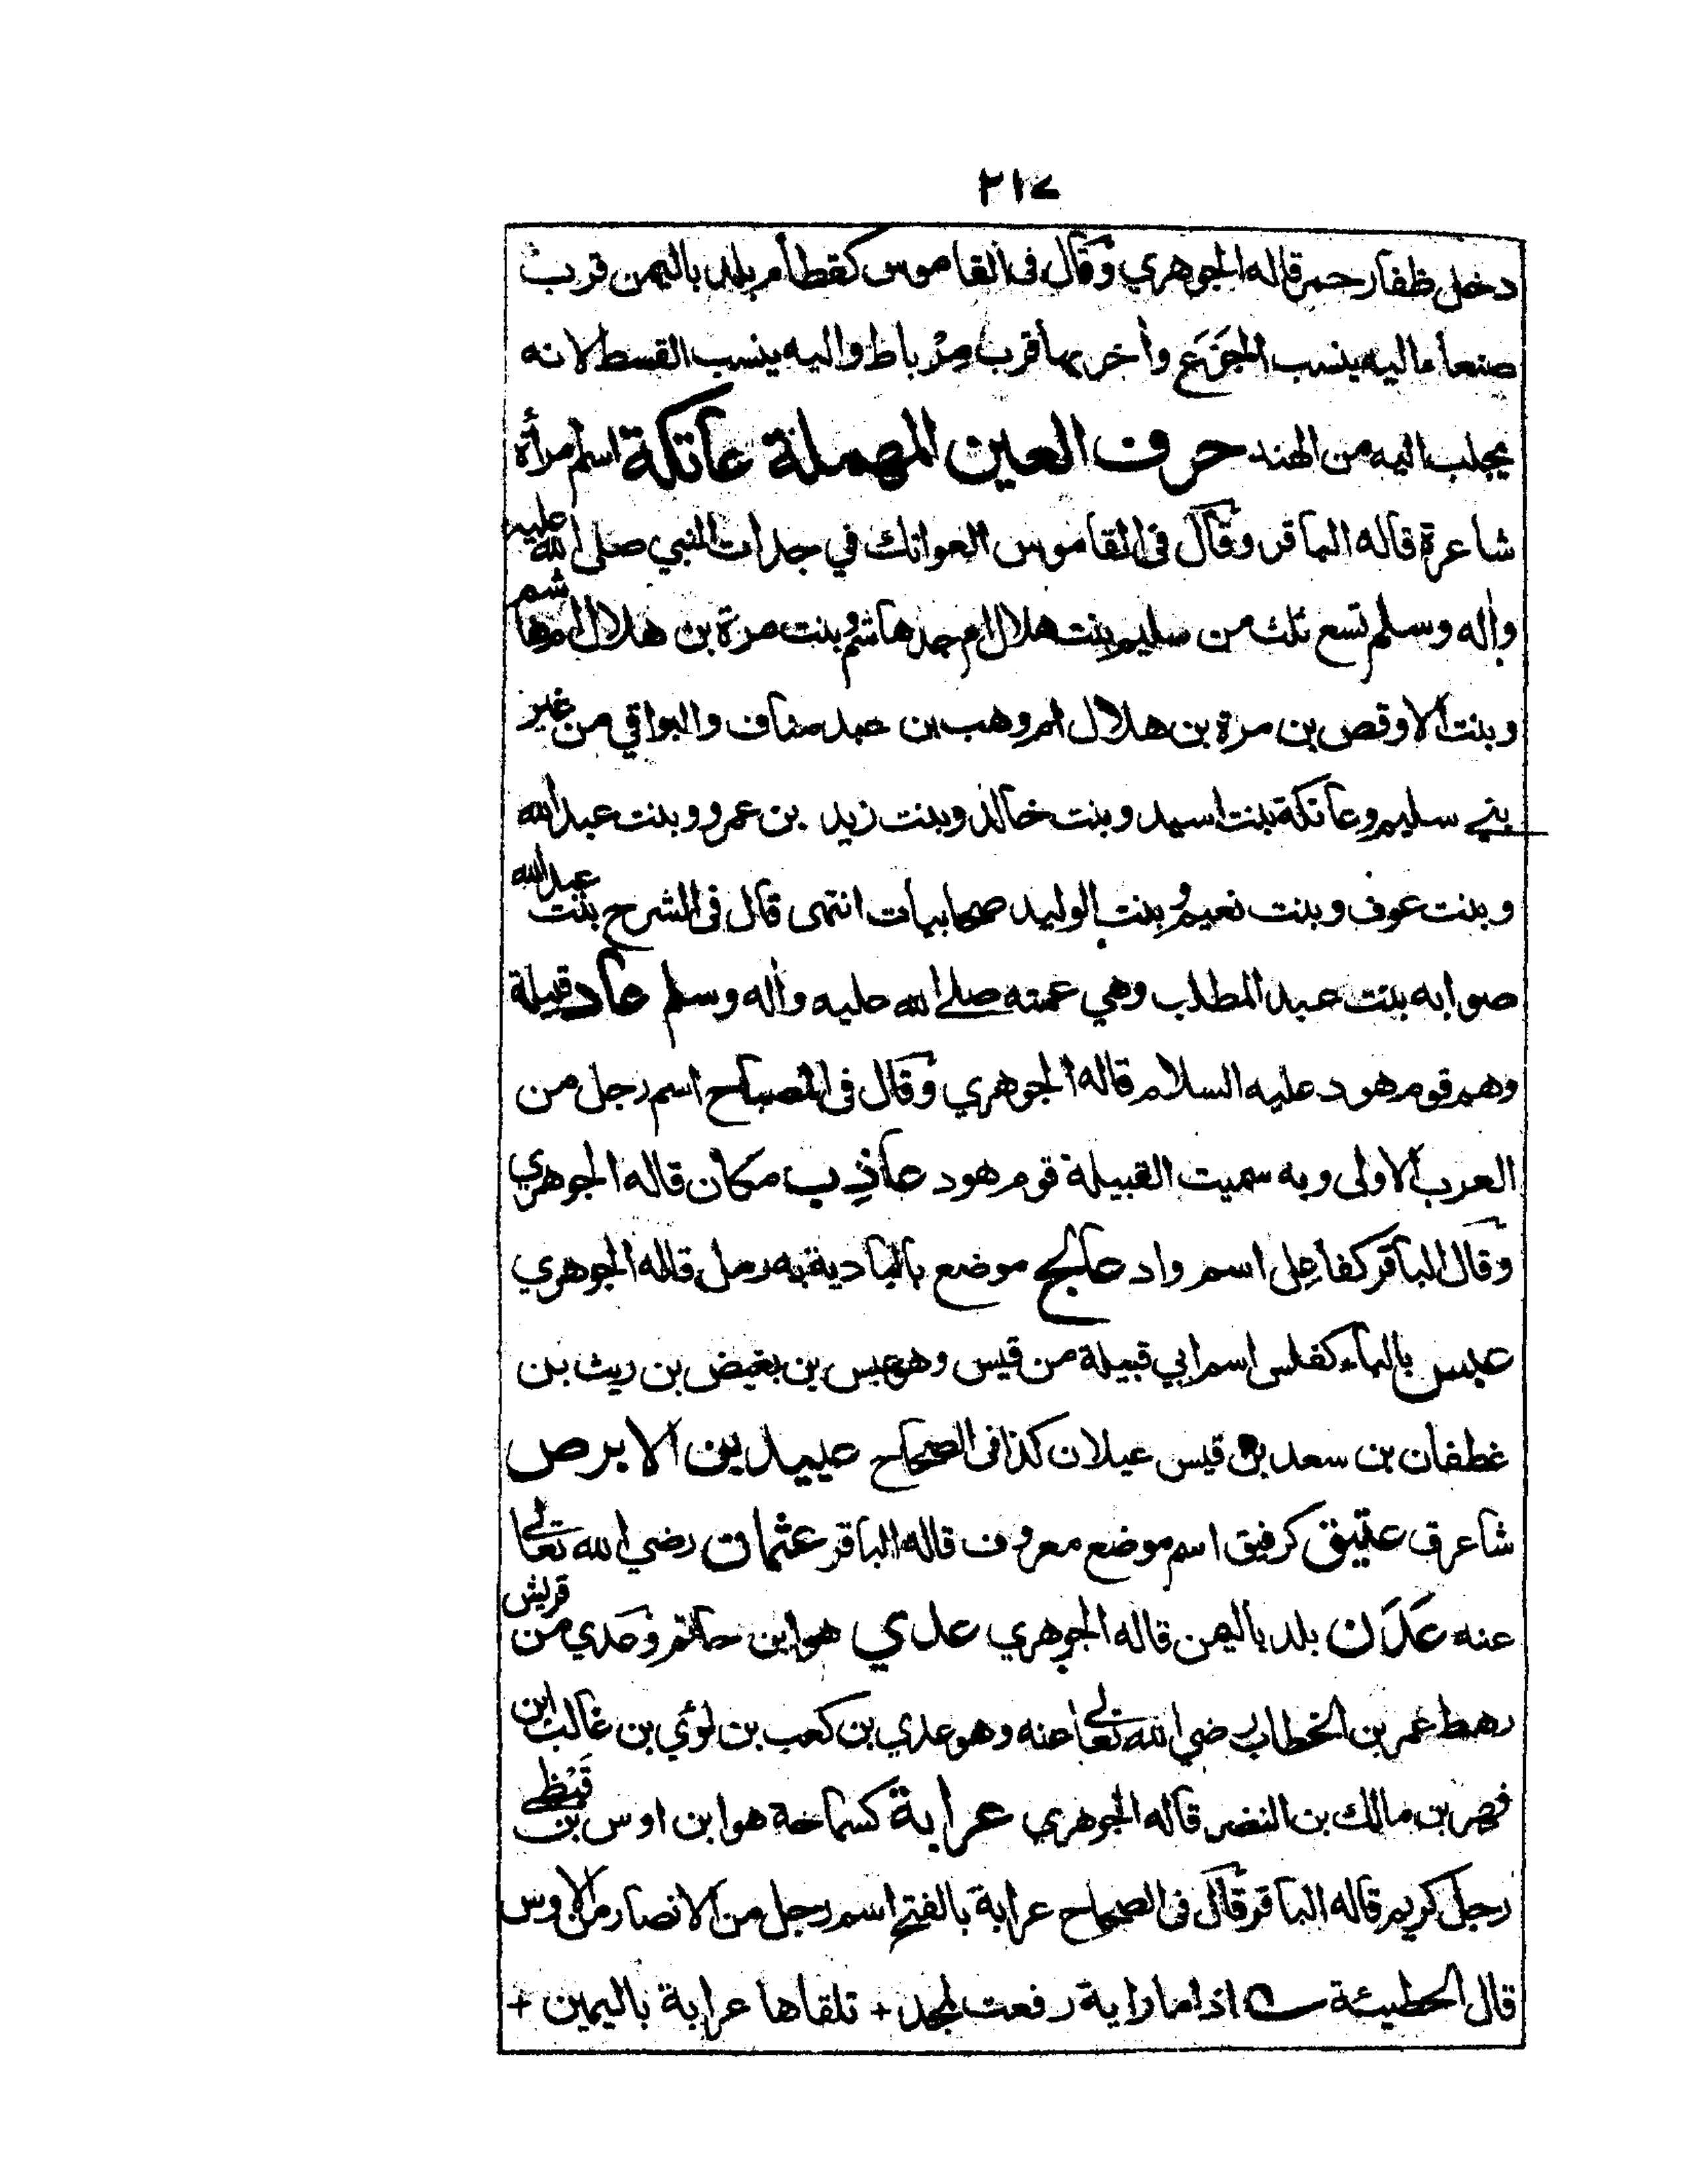 ٢١٧
دخل ظفار حمر قاله الجوهري وقال فى القاموس كقطام بلد باليمن قرب
صنعأ ما اليه ينسب الجَزَع وأخر بها قرب مِرْباط واليه ينسب القسط لانه
يجلب اليه من الهند حرف العين المهملة عاتكة اسم امرأة
شاعرة قاله الباقر وقال فى القاموس العواتك في جدات النبي صلى الله عليه
واٰله وسلم تسع ثلث من سليم بنت هلال ام جد هاشم وبنت مرة بن هلال ام هاشم
وبنت الاوقص بن مرة بن هلال ام وهب بن عبد مناف والبواقي من غير
بني سليم وعاتكة بنت اسيد وبنت خالد وبنت زيد بن عمرو وبنت عبد الله
وبنت عوف وبنت نعيم وبنت الوليد صحابيات انتهى قال فى الشرح بنت عبد الله
صوابه بنت عبد المطلب وهي عمته صلے الله عليه واٰله وسلم عاد قبيلة
وهم قوم هود عليه السلام قاله الجوهري وقال فى المصباح اسم رجل من
العرب الاولى وبه سميت القبيلة قوم هود عاذب مكان قاله الجوهري
وقال الباقر كفاعل اسم واد عالج موضع بالبادية به رمل قاله الجوهري
عبس بالباء كفلس اسم ابي قبيلة من قيس وهو عبس بن بغيض بن ريث بن
غطفان بن سعد بن قيس عيلان كذا فى الصحاح عبيد بن الابرص
شاعر ق عتيق كرفيق اسم موضع معروف قاله الباقر عثمان رضي الله تعالے
عنه عَدَن بلد باليمن قاله الجوهري عدي هو ابن حاتم وعدي من قريش
رهط عمر بن الخطاب رضي الله تعالے عنه وهو عدي بن كعب بن لؤي بن غالب ابن
فهر بن مالك بن النضر قاله الجوهري عرابة كسماحة هو ابن اوس بن قَيْظے
رجل كريم قاله الباقر قال فى الصحاح عرابة بالفتح اسم رجل من الانصار من الاوس
قال الحطيئة اذا ما راية رفعت لمجد + تلقاها عرابة باليمين +